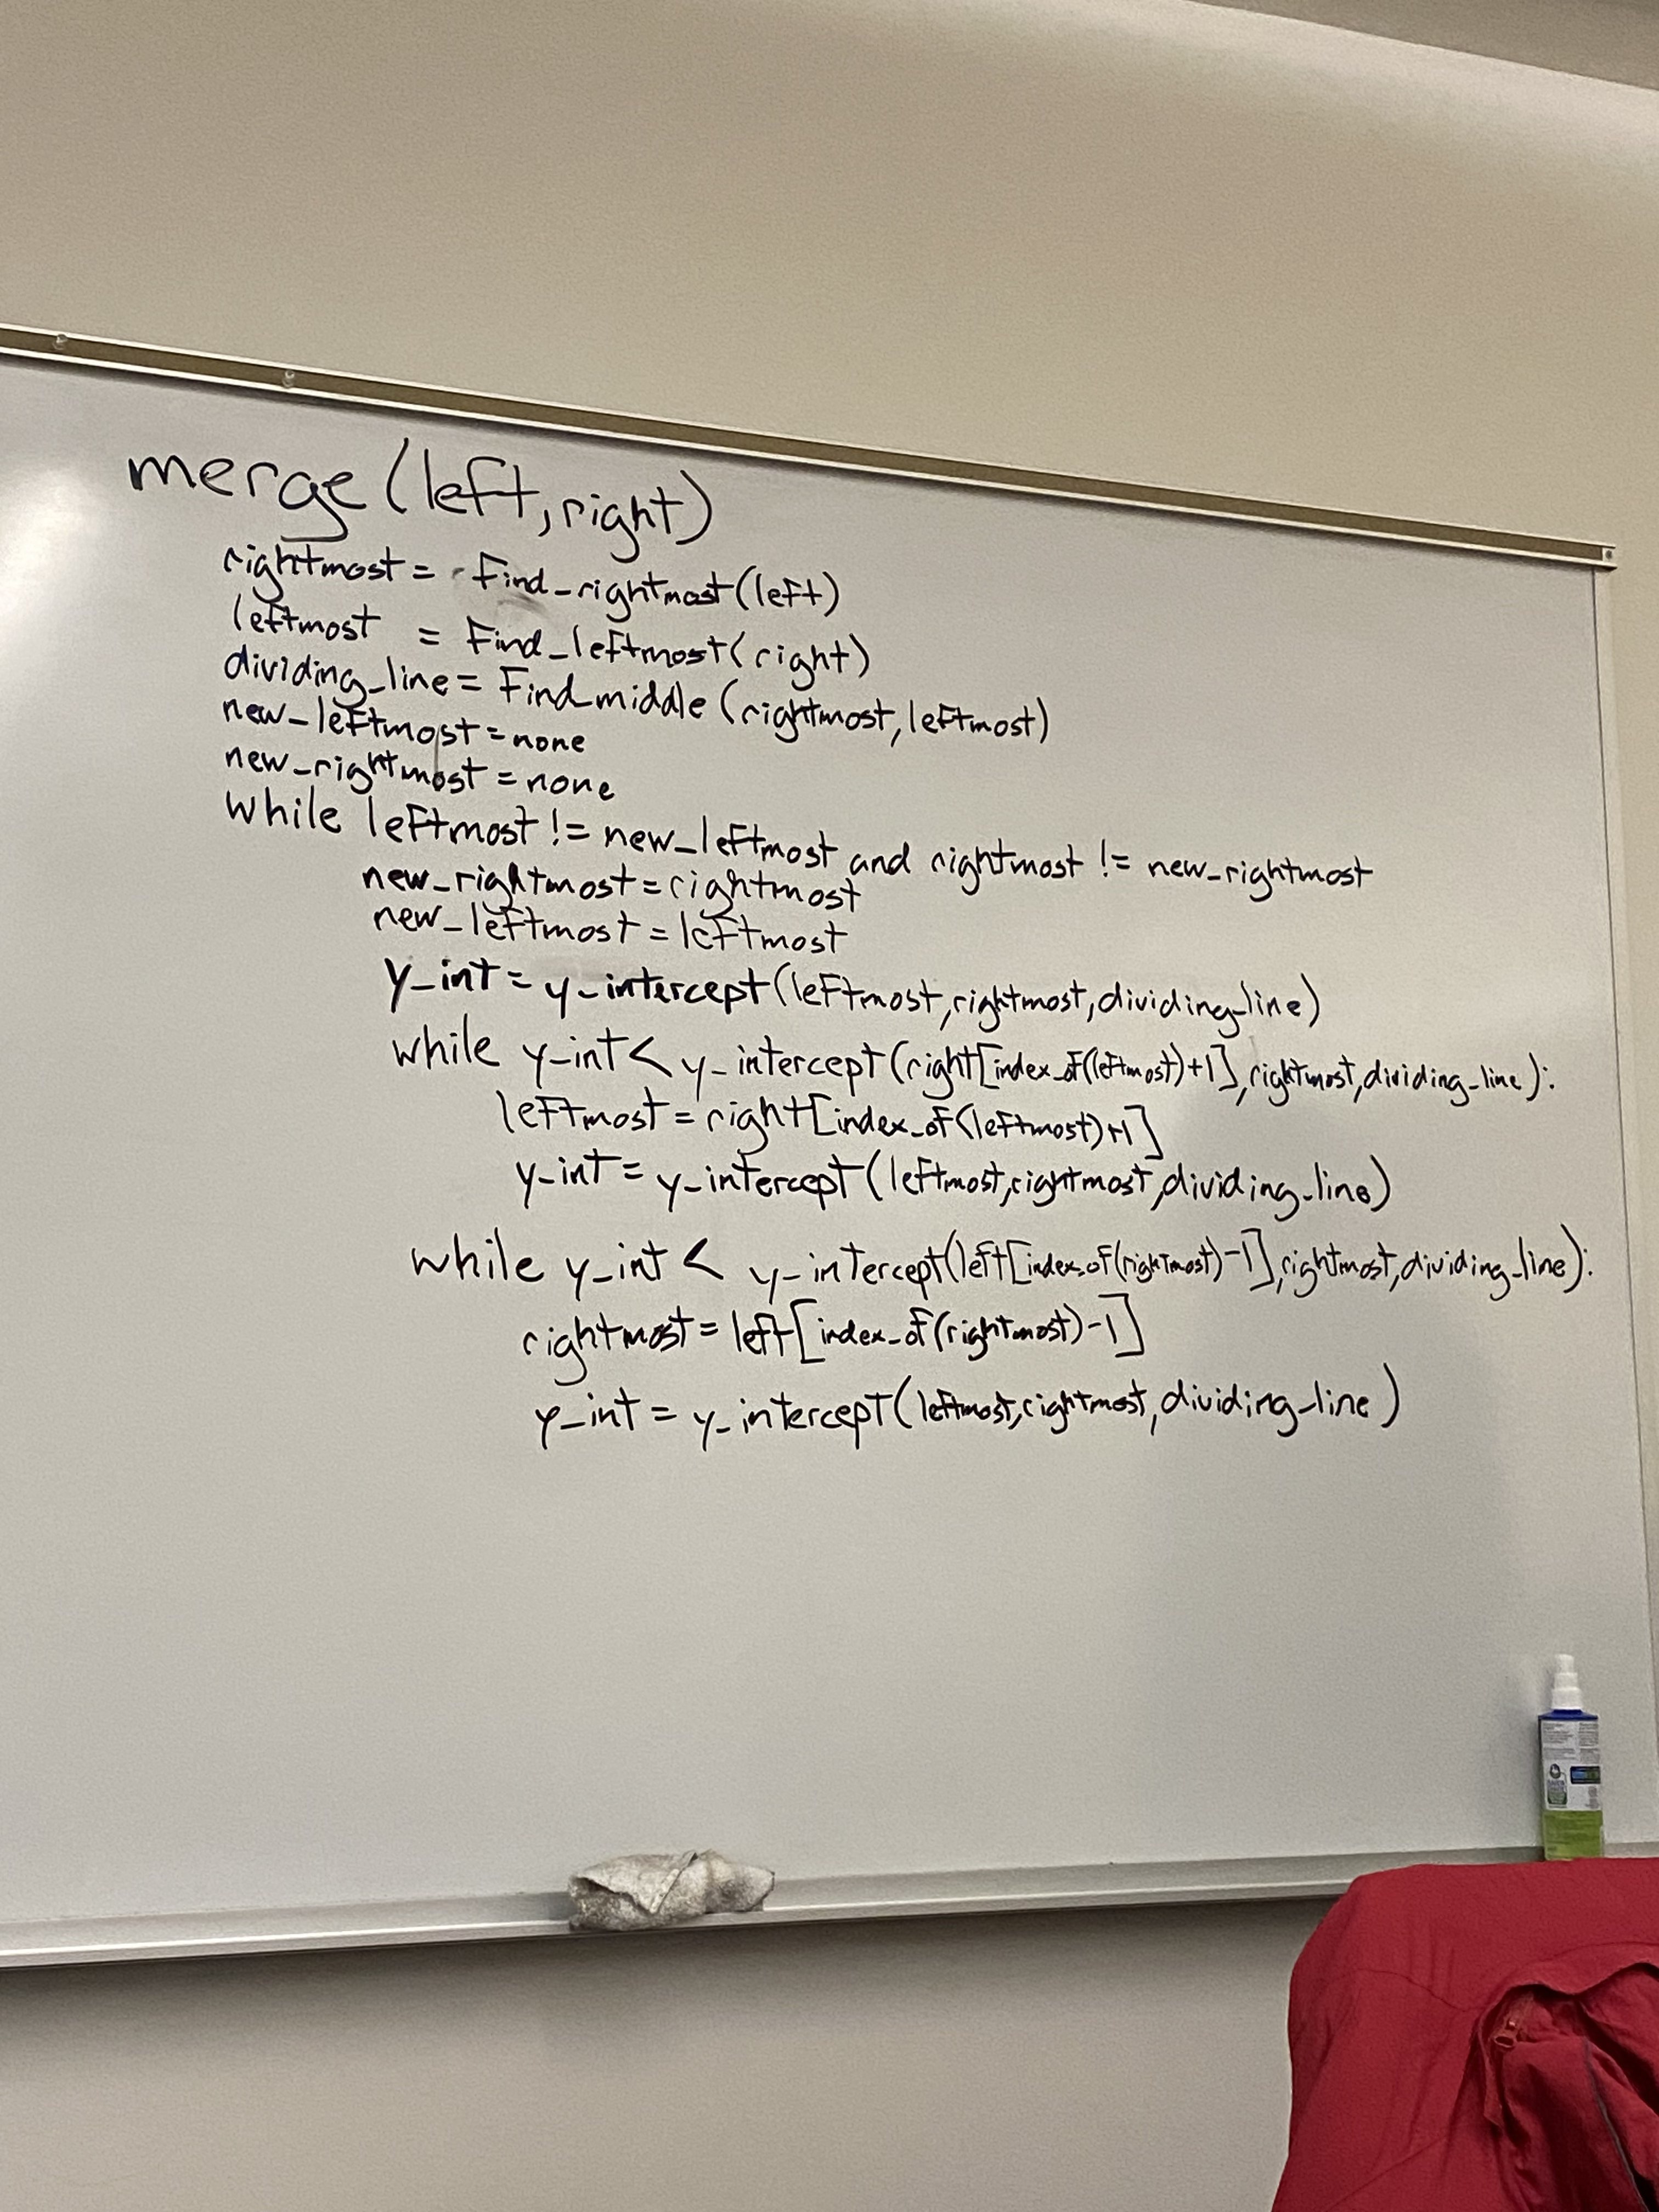 merge(left,right)
rightmost = find_rightmost(left)
leftmost = find_leftmost(right)
dividing_line = Find_middle (rightmost, leftmost)
new_leftmost = none
new_rightmost = none
while leftmost != new_leftmost and rightmost != new_rightmost
new_rightmost = rightmost
new_leftmost = leftmost
y_int = y_intercept(leftmost, rightmost, dividing_line)
while y_int < y_intercept(right[index_of(leftmost)+1], rightmost, dividing_line):
leftmost = right[index_of(leftmost)+1]
y_int = y_intercept(leftmost, rightmost, dividing_line)
while y_int < y_intercept(left[index_of(rightmost)-1], rightmost, dividing_line):
rightmost = left[index_of(rightmost)-1]
y_int = y_intercept(leftmost, rightmost, dividing_line)